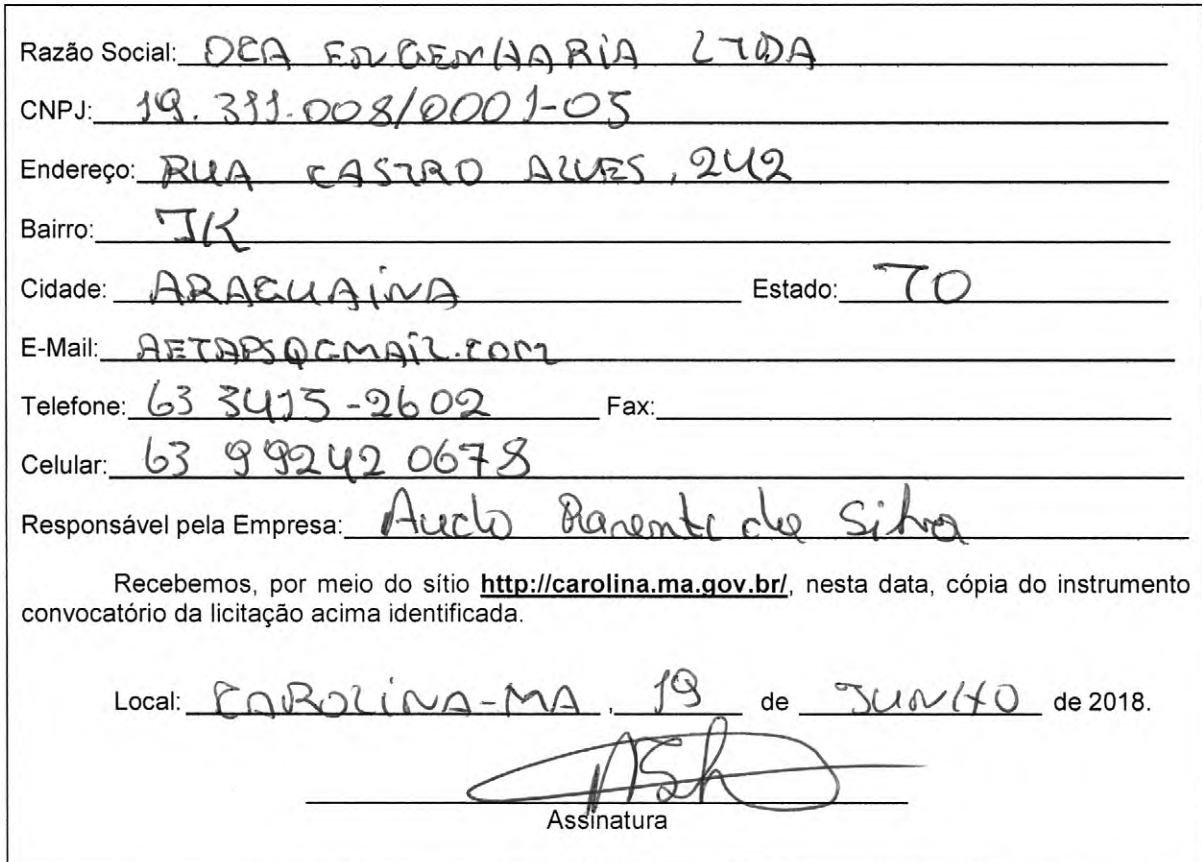 Razão Social: DCA ENGENHARIA LTDA
CNPJ: 19.311.008/0001-05
Endereço: RUA CASTRO ALVES, 242
Bairro: JK
Cidade: ARAGUAÍNA Estado: TO
E-Mail: AETAPS@GMAIL.COM
Telefone: 63 3415-2602 Fax:
Celular: 63 99242 0678
Responsável pela Empresa: Parente da Silva
Recebemos, por meio do sítio http://carolina.ma.gov.br/, nesta data, cópia do instrumento
convocatório da licitação acima identificada.
Local: CAROLINA-MA, 19 de JUNHO de 2018.
Assinatura